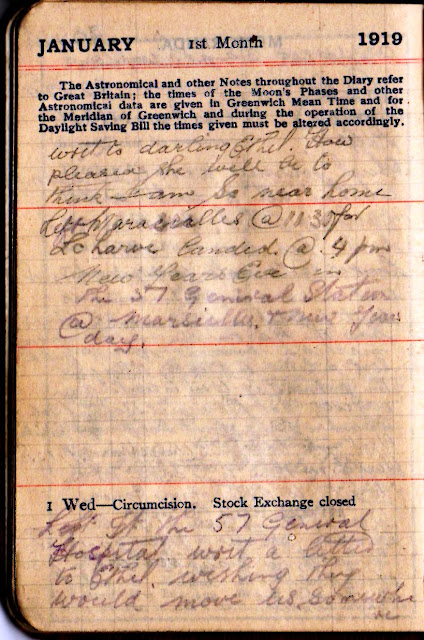 JANUARY 1st Month 1919
The Astronomical and other Notes throughout the Diary refer
to Great Britain; the times of the Moon's Phases and other
Astronomical data are given in Greenwich Mean Time and for
the Meridian of Greenwich and during the operation of the
Daylight Saving Bill the times given must be altered accordingly.
writ to darling Ethel. How
pleased she will be to
think I am so near home
Left @ 11 30 for
Landed @ 4 pm
New Years Eve in
the 57 General
@ New Years
day.
1 Wed—Circumcision. Stock Exchange closed
Left at the 57 General
Hospital writ a letter
to Ethel wishing they
would move us